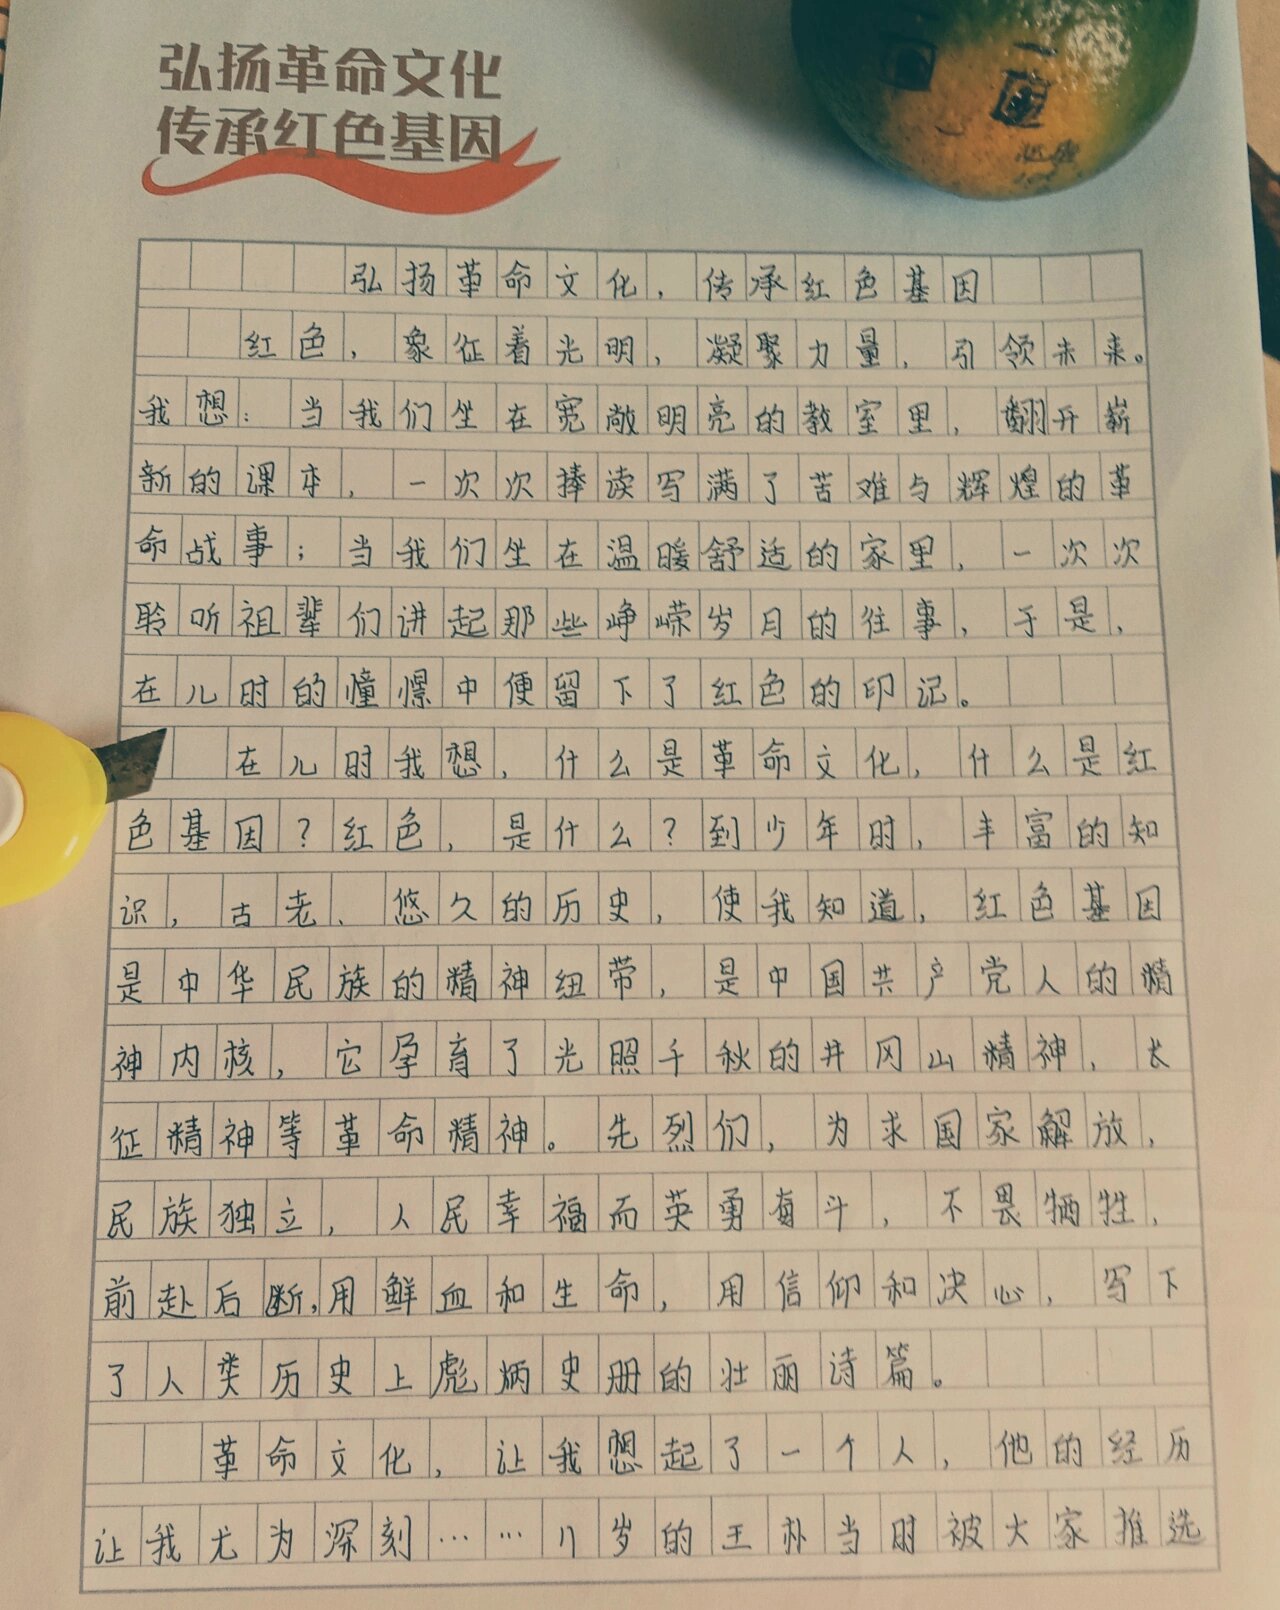 弘扬革命文化
传承红色基因
弘扬革命文化，传承红色基因
红色，象征着光明，凝聚力量，引领未来。
我想：当我们坐在宽敞明亮的教室里，翻开崭
新的课本，一次次捧读写满了苦难与辉煌的革
命战事；当我们坐在温暖舒适的家里，一次次
聆听祖辈们讲起那些峥嵘岁月的往事，于是，
在儿时的憧憬中便留下了红色的印记。
在儿时我想，什么是革命文化，什么是红
色基因？红色，是什么？到少年时，丰富的知
识，古老、悠久的历史，使我知道，红色基因
是中华民族的精神纽带，是中国共产党人的精
神内核，它孕育了光照千秋的井冈山精神，长
征精神等革命精神。先烈们，为求国家解放，
民族独立，人民幸福而英勇奋斗，不畏牺牲，
前赴后断，用鲜血和生命，用信仰和决心，写下
了人类历史上彪炳史册的壮丽诗篇。
革命文化，让我想起了一个人，他的经历
让我尤为深刻……11岁的王朴当时被大家推选